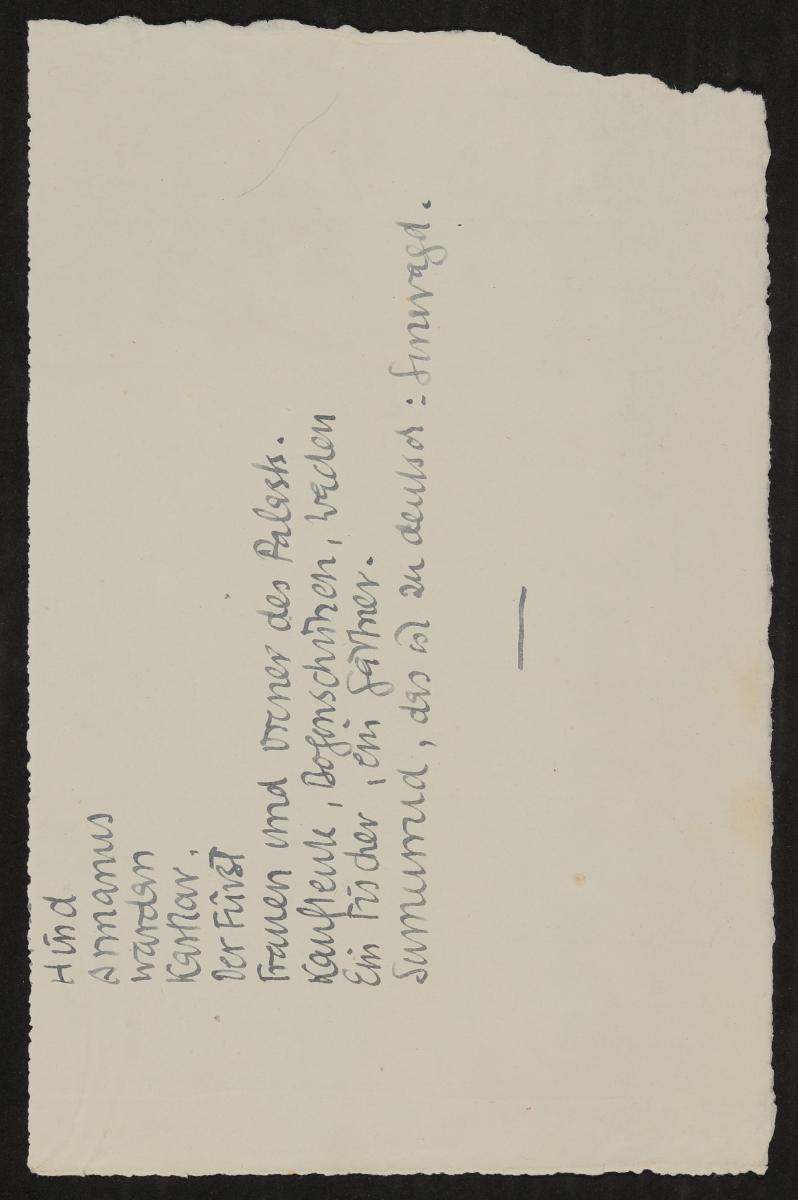 Hind
Armanus
Wardan
Kashar,
Der Fürst
Frauen und Diener des Palasts.
Kaufleute, Bogenschützen, Wachen
Ein Fischer, ein Gärtner.
Sumurrud, das ist zu deutsch: Smaragd.